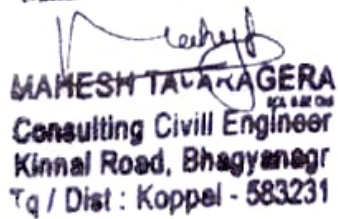 MAHESH TALARAGERA
Consulting Civill Engineer
Kinnal Road, Bhagyanagr
Tq / Dist : Koppal - 583231